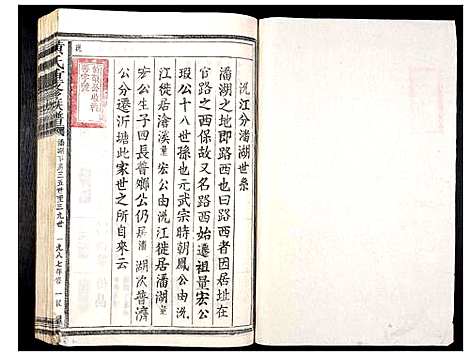 沅江分潘湖世系
潘湖之地即路西也曰路西者因居址在
官路之西保故又名路西始遷祖量宏公
瑕公十八世孫也元武宗時朝鳳公由沅
江徙居滄溪量宏公由沅江徙居潘湖量
宏公生子四長普鄉公仍居潘湖次普濟
公分遷沂塘此家世之所自來云
黃氏重修族譜
潘湖下房三五世至三九世
一九八七年